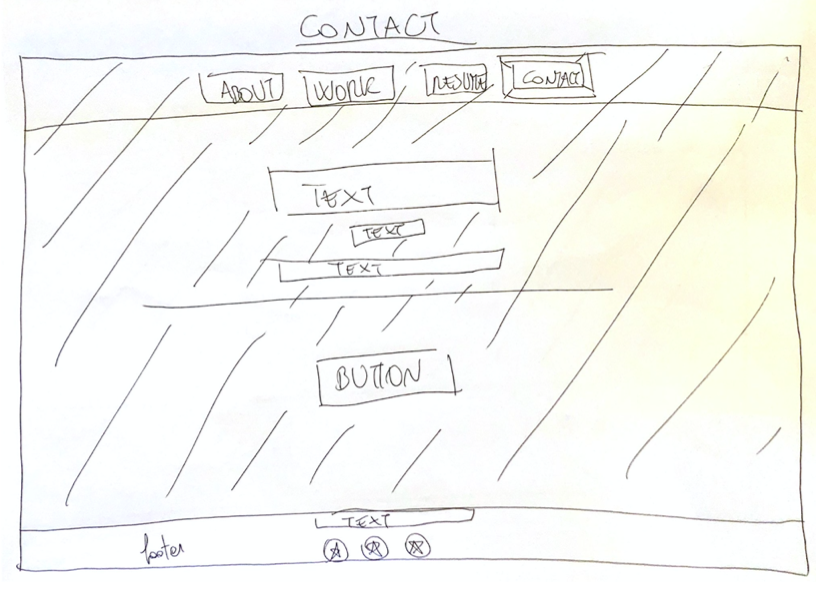 CONTACT
ABOUT WORK RESUME CONTACT
TEXT
TEXT
TEXT
BUTTON
TEXT
footer